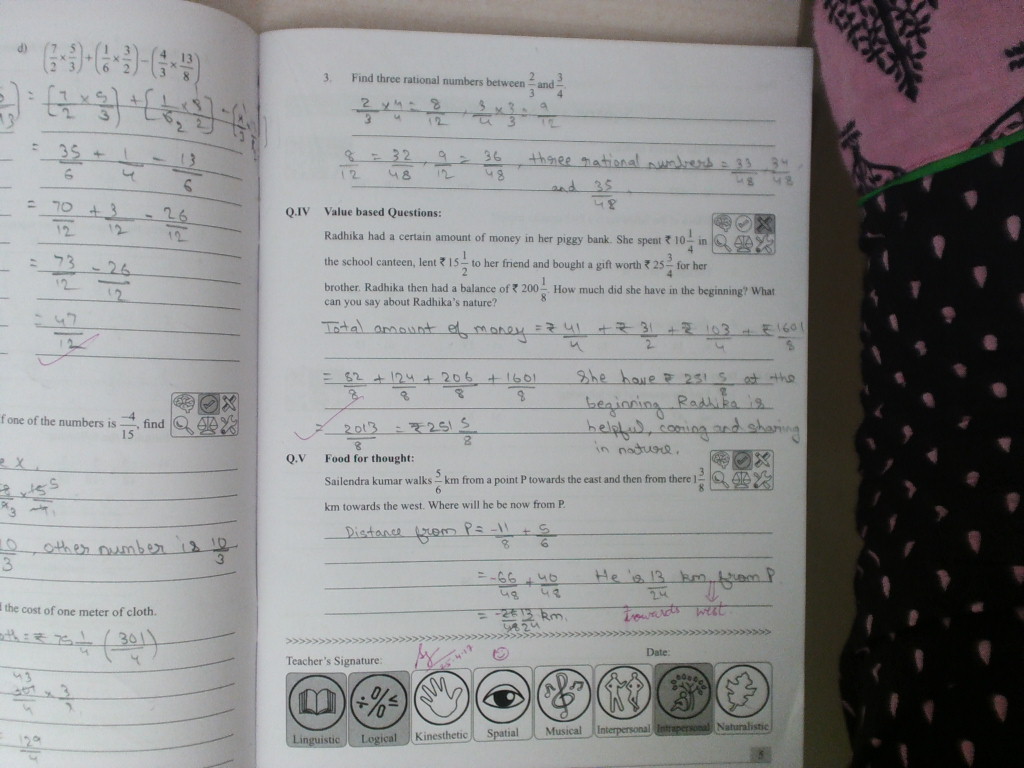 d) (7/2 × 5/3) + (1/6 × 3/2) − (4/3 × 13/8)
= 35/6 + 1/4 − 13/6
= 70/12 + 3/12 − 26/12
= 73/12 − 26/12
= 47/12
f one of the numbers is −4/15, find
10/3, other number is 10/3
the cost of one meter of cloth.
= ₹ 75 1/4 (301/4)
129/4
3. Find three rational numbers between 2/3 and 3/4.
2/3 × 4/4 = 8/12, 3/4 × 3/3 = 9/12
8/12 = 32/48, 9/12 = 36/48, three rational numbers = 33/48, 34/48,
and 35/48.
Q.IV Value based Questions:
Radhika had a certain amount of money in her piggy bank. She spent ₹ 10 1/4 in
the school canteen, lent ₹ 15 1/2 to her friend and bought a gift worth ₹ 25 3/4 for her
brother. Radhika then had a balance of ₹ 200 1/8. How much did she have in the beginning? What
can you say about Radhika's nature?
Total amount of money = ₹ 41/4 + ₹ 31/2 + ₹ 103/4 + ₹ 1601/8
= 82/8 + 124/8 + 206/8 + 1601/8
= 2013/8 = ₹ 251 5/8
She have ₹ 251 5/8 at the
beginning. Radhika is
helpful, caring and sharing
in nature.
Q.V Food for thought:
Sailendra kumar walks 5/6 km from a point P towards the east and then from there 1 3/8
km towards the west. Where will he be now from P.
Distance from P = −11/8 + 5/6
= −66/48 + 40/48
= −26/48 13/24 km.
He is 13/24 km from P.
towards west.
Teacher's Signature:
Date:
Linguistic
Logical
Kinesthetic
Spatial
Musical
Interpersonal
Intrapersonal
Naturalistic
5